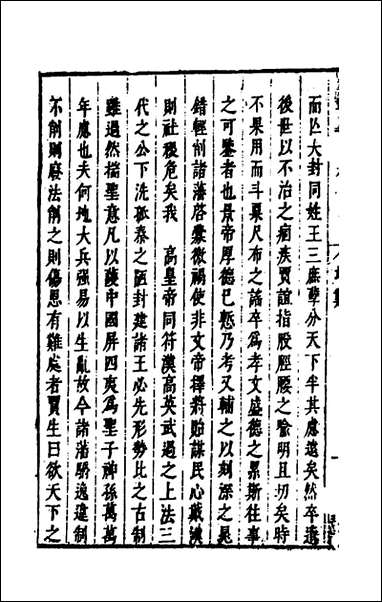 而亾大封同姓王三庶孽分天下半其慮遠矣然卒遺
後世以不治之痼疾賈誼指股脛腰之喻明且切矣時
不果用而斗粟尺布之謠卒為孝文盛德之累斯往事
之可鑒者也景帝厚德已慙乃考又輔之以刻深之晁
錯輕削諸藩啓釁微禍使非文帝擇將貽謀民心戴漢
則社稷危矣我　高皇帝同符漢高英武過之上法三
代之公下洗孤秦之陋封建諸王必先形勢比之古制
雖過然揣聖意凡以䕶中國屏四夷為聖子神孫萬萬
年慮也夫何地大兵强易以生亂故今諸藩驕逸違制
不削則廢法削之則傷恩有難處者賈生曰欲天下之